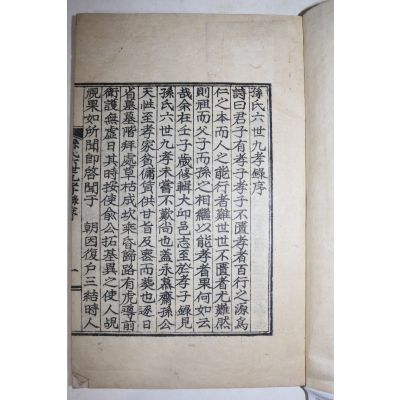 孫氏六世九孝錄序
詩曰君子有孝子孝子不匱孝者百行之源爲
仁之本而人之能行者難世世不匱者尤難然
則祖而父子而孫之相繼以能孝者果何如云
哉余在壬子歲修輯大邱邑志至於孝子錄見
孫氏六世九孝未嘗不歎尚也盖永慕齋孫公
天性至孝家貧傭賃供甘旨及喪而葬也逐日
省墓墓階拜處草枯成坎乘昏歸路有虎導前
衛護無虛日其時按使兪公拓基異之使人覘
視果如所聞即啓聞于　朝因復戶三結時人
孫氏六世九孝錄序
一